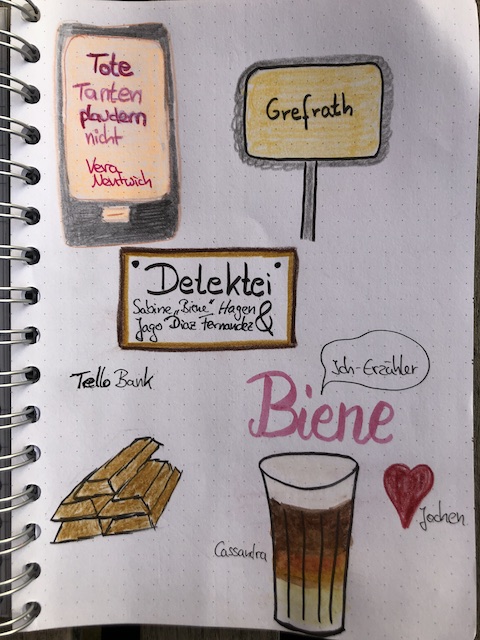 Tote
Tanten
plaudern
nicht
Vera
Nentwich
Grefrath
Detektei
Sabine „Biene" Hagen
&
Jago Diaz Fernandez
Tello Bank
Ich-Erzähler
Biene
Jochen
Cassandra